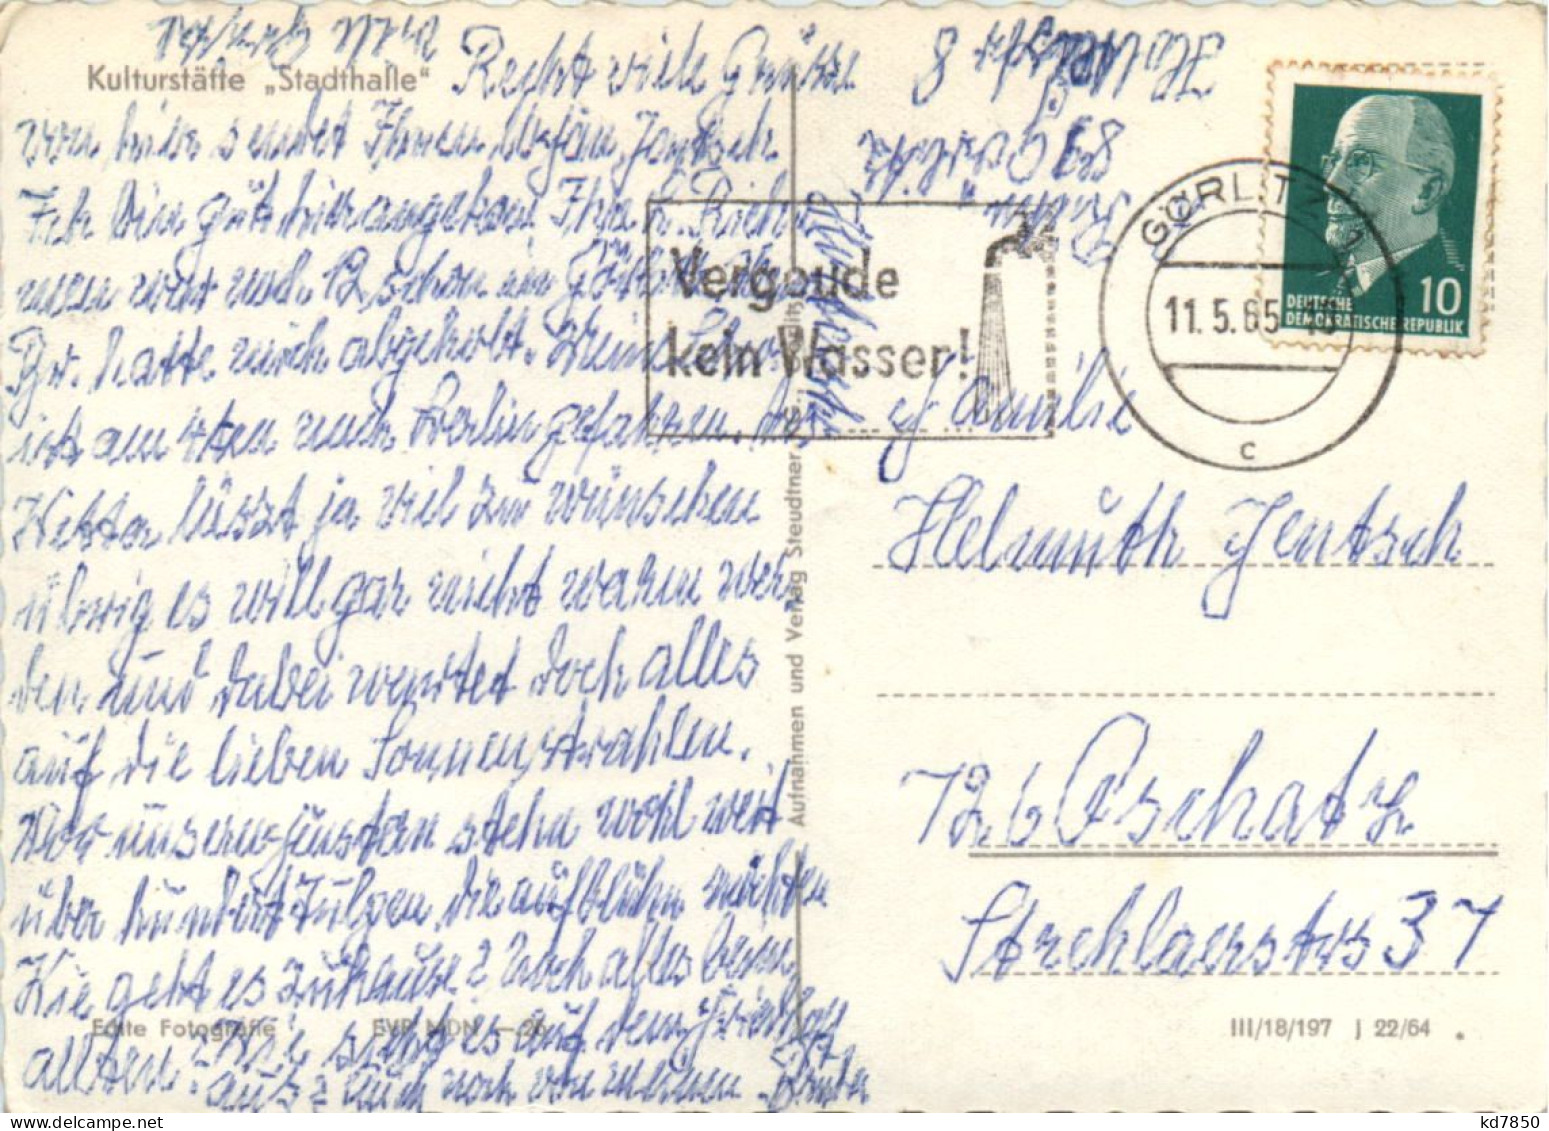 Kulturstätte „Stadthalle"
Recht viele Grüße
von hier sendet Ihnen Jentsch
Ich bin gut hier angekom Ihr
nach 12 schon in
hatte mich abgeholt.
ist am 4ten nach Berlin gefahren. Das
Wetter lässt ja viel zu wünschen
übrig es will gar nicht warm wer
den und dabei wartet doch alles
auf die lieben Sonnenstrahlen.
Vor unseren Fenstern stehn wohl weit
über hundert Tulpen die aufblühn möchten
Wie geht es zuhause? Noch alles beim
alten? Wie sieht es auf dem Friedhof
aus? Auch noch von meinem
Echte Fotografie EVP MDN –.26
Aufnahmen und Verlag Steudtner
89 Görlitz
Vergeude
kein Wasser!
GÖRLITZ 1
11.5.65
c
DEUTSCHE
DEMOKRATISCHE REPUBLIK
10
Familie
Helmuth Jentsch
726 Oschatz
Strehlaerstrs 37
III/18/197 J 22/64
kd7850